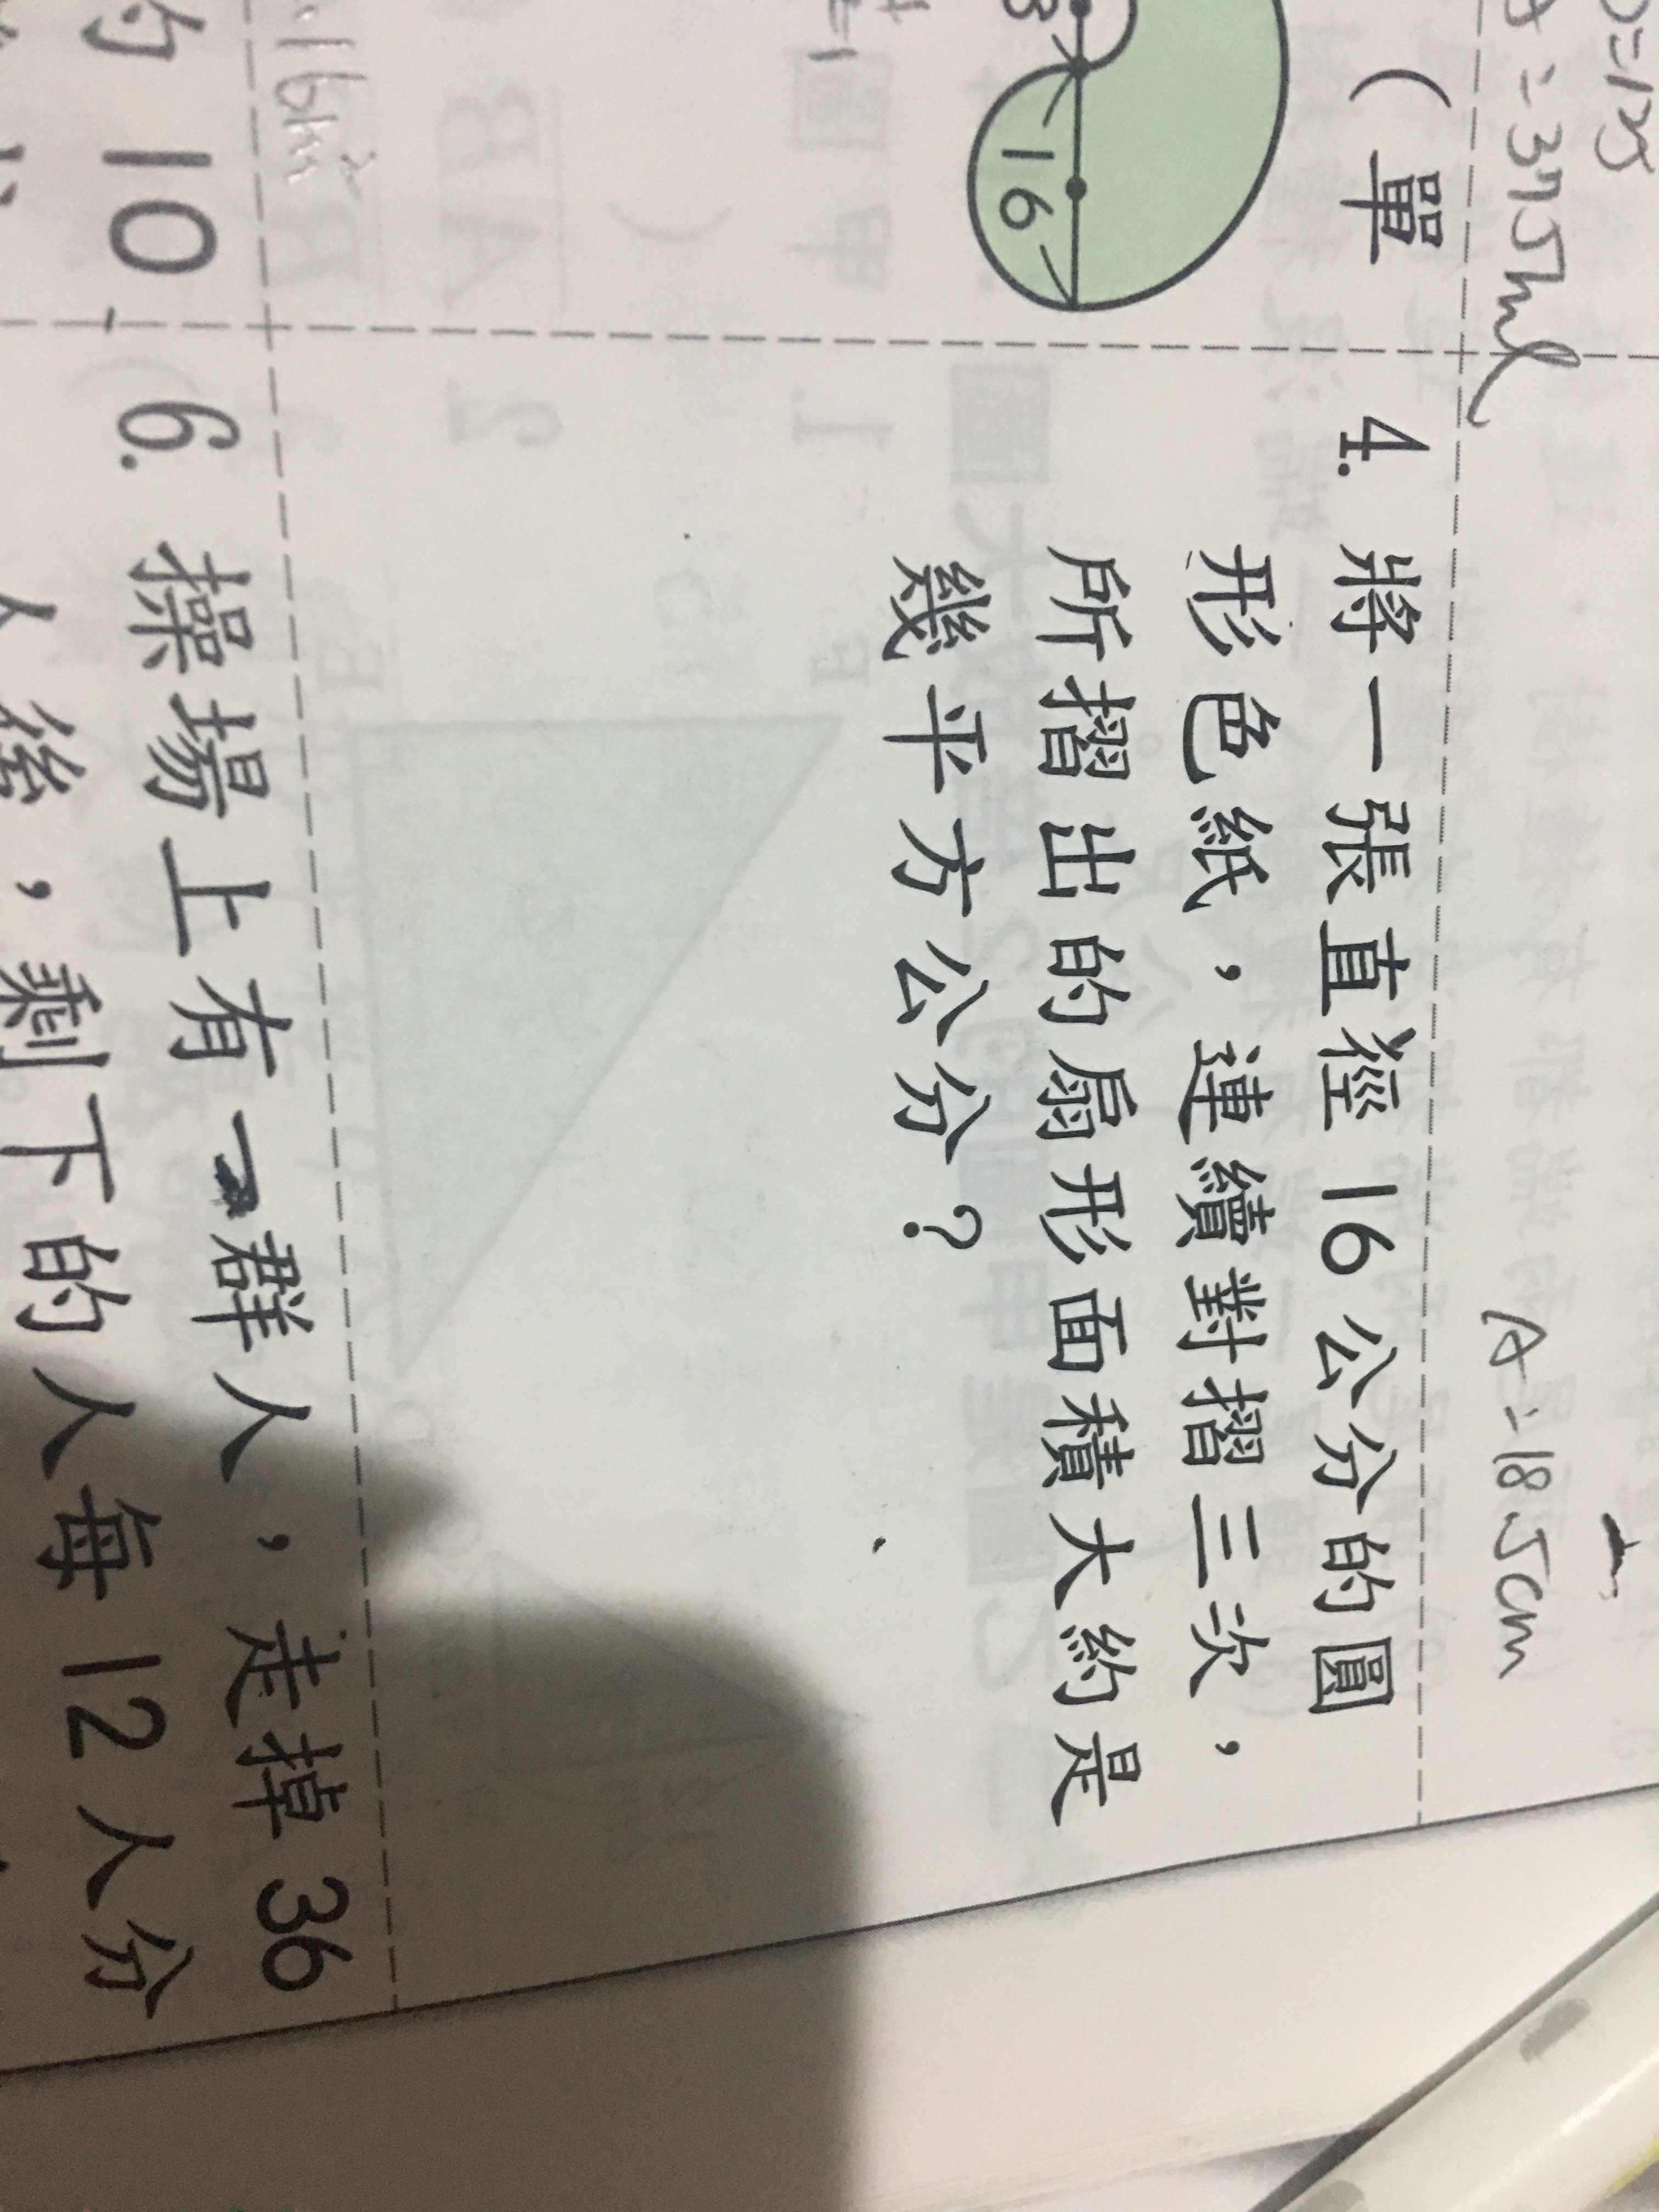 A=375ml
A=18.5cm
(單
16
4. 將一張直徑16公分的圓
形色紙，連續對摺三次，
所摺出的扇形面積大約是
幾平方公分？
約10
6. 操場上有一群人，走掉36
人後，剩下的人每12人分